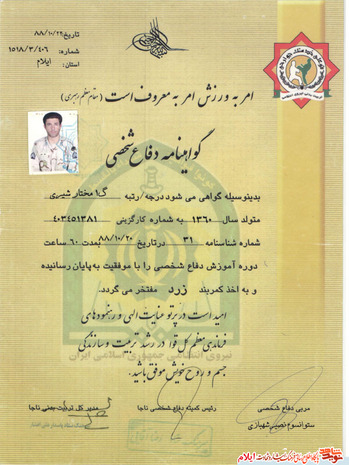 تاریخ ۸۸/۱۰/۲۴
شماره: ۱۵۱۸/۳/۴۰۶
استان: ایلام
امر به ورزش امر به معروف است (مقام معظم رهبری)
گواهینامه دفاع شخصی
بدینوسیله گواهی می شود درجه/رتبه گ۱ مختار شیری
متولد سال ۱۳۶۰ به شماره کارگزینی ۴۰۳۴۵۱۳۸۱
شماره شناسنامه ۳۱ درتاریخ ۸۸/۱۰/۲۰ بمدت ۶۰ ساعت
دوره آموزش دفاع شخصی را با موفقیت به پایان رسانیده
و به اخذ کمربند زرد مفتخر می گردد.
امید است در پرتو عنایت الهی و رهنمودهای
فرماندهی معظم کل قوا در رشد تربیت و سازندگی
جسم و روح خویش موفق باشید.
نیروی انتظامی جمهوری اسلامی ایران
مربی دفاع شخصی
ستوانسوم نصیر شهبازی
رئیس کمیته دفاع شخصی ناجا
مدیر کل تربیت بدنی ناجا